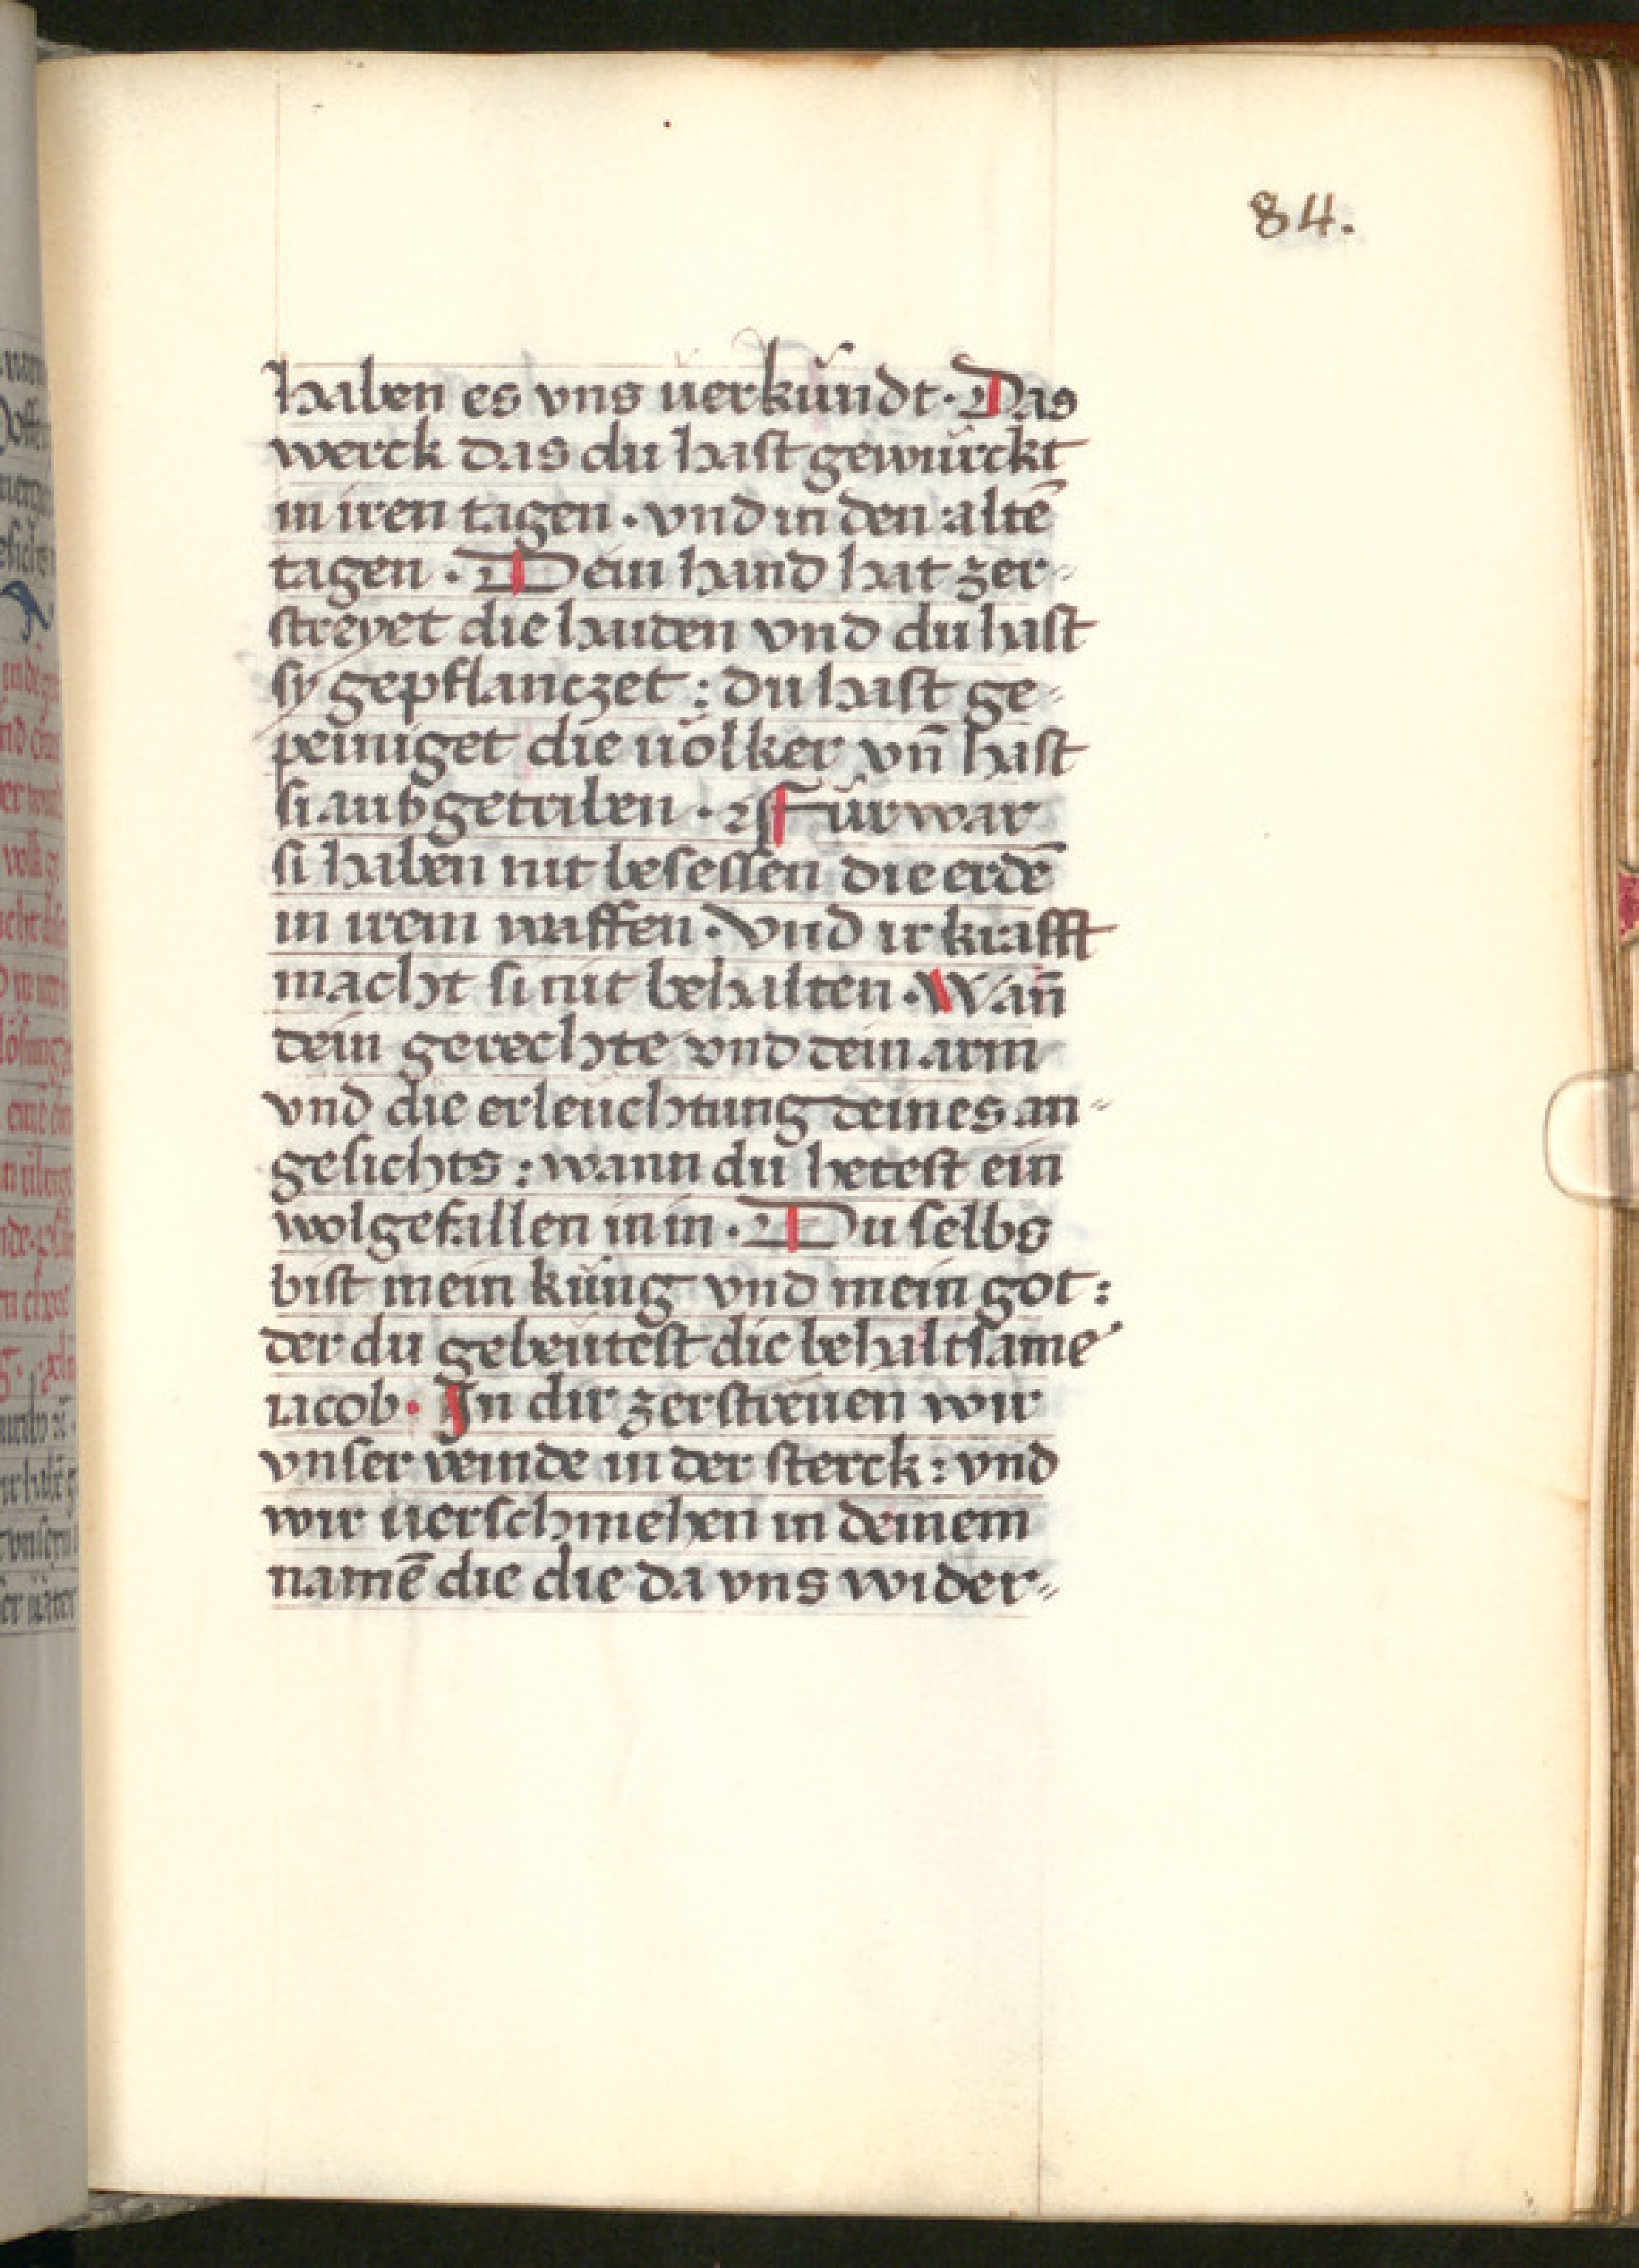 84.
haben es vns uerkündt · Das
werck das du hast gewürckt
in iren tagen · vnd in den altē
tagen · Dein hand hat zer-
streyet die haiden vnd du hast
sy gepflanczet : du hast ge-
peiniget die uölker vn̄ hast
si außgetriben · Fürwar
si haben nit besessen die erdē
in irem waffen · vnd ir krafft
macht si nit behalten · Wan̄
dein gerechte vnd dein arm
vnd die erleuchtung deines an-
gesichts : wann du hetest ein
wolgefallen in in · Du selbs
bist mein küng vnd mein got :
der du gebeutest die behaltsame
iacob · In dir zerstreuen wir
vnser veinde in der sterck : vnd
wir uerschmehen in deinem
namē die die da vns wider-